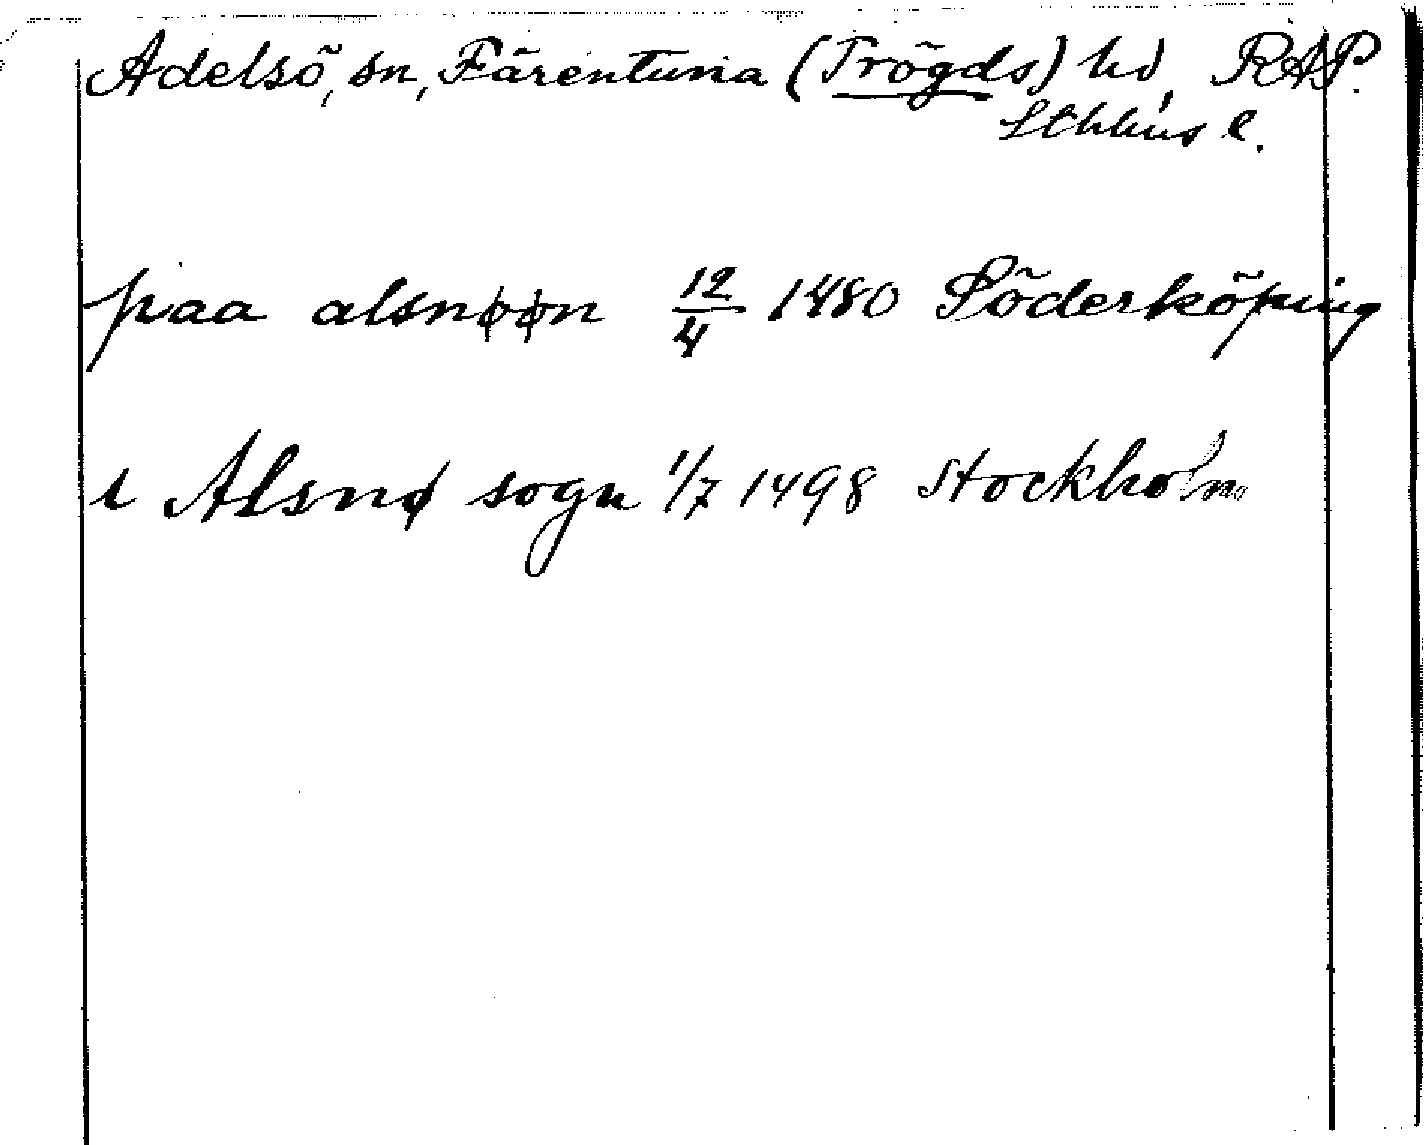 Adelsö, sn, Färentuna (Trögds) hd, RAP.
Sthlms l.
paa alsnøøn 12/4 1480 Söderköping
i Alsnø sogn 1/7 1498 Stockholm